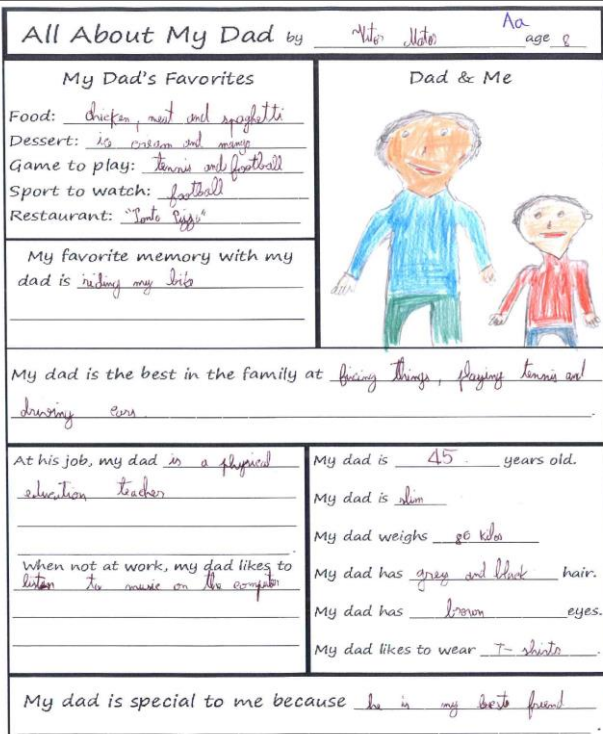 Aa
All About My Dad by Vitor Matos age 8
My Dad's Favorites
Food: chicken, meat and spaghetti
Dessert: ice cream and mango
Game to play: tennis and football
Sport to watch: football
Restaurant: "Ponto Pizza"
My favorite memory with my
dad is riding my bike
Dad & Me
My dad is the best in the family at fixing things, playing tennis and
driving cars.
At his job, my dad is a physical
education teacher
.
When not at work, my dad likes to
listen to music on the computer
.
My dad is 45 years old.
My dad is slim
My dad weighs 80 kilos
My dad has grey and black hair.
My dad has brown eyes.
My dad likes to wear T-shirts.
My dad is special to me because he is my besto friend
.